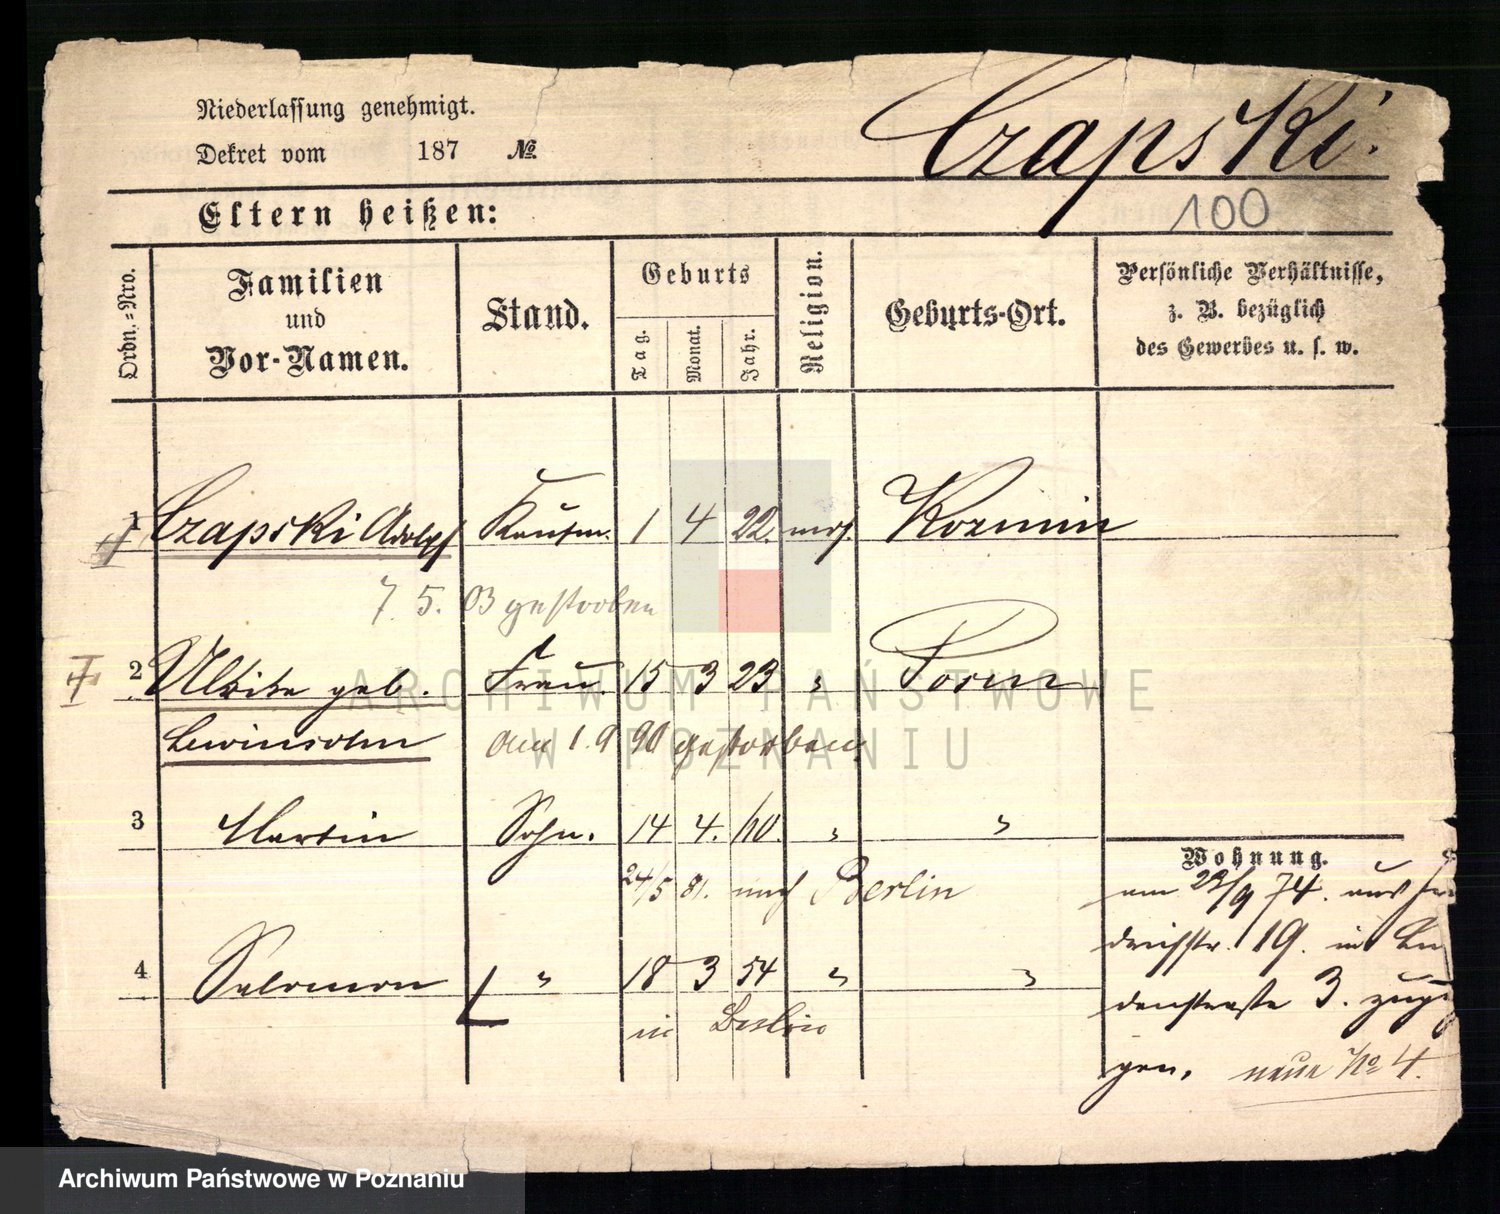 Niederlassung genehmigt.
Czapski.
Dekret vom 187 No.
100
Eltern heißen:
Ordn.=Nro.
Familien
und
Vor-Namen.
Stand.
Geburts
Tag.
Monat.
Jahr.
Religion.
Geburts-Ort.
Persönliche Verhältnisse,
z. B. bezüglich
des Gewerbes u. s. w.
1 Czapski Adolph Kaufm. 1 4 22. mos. Kozmin
7. 5. 03 gestorben
2 geb. Frau. 15 3 23 " Posen
Lewinsohn am 1. 9 90 gestorben
3 Martin Sohn. 14 4. 60. " "
24/5 81. nach Berlin
4 Salomon " 18 3 54 " "
in Berlin
Wohnung.
am 23/9 74. aus Frie
drichstr. 19. in Lin
denstraße 3. zugezo
gen. neue No 4.
ARCHIWUM PAŃSTWOWE
W POZNANIU
Archiwum Państwowe w Poznaniu